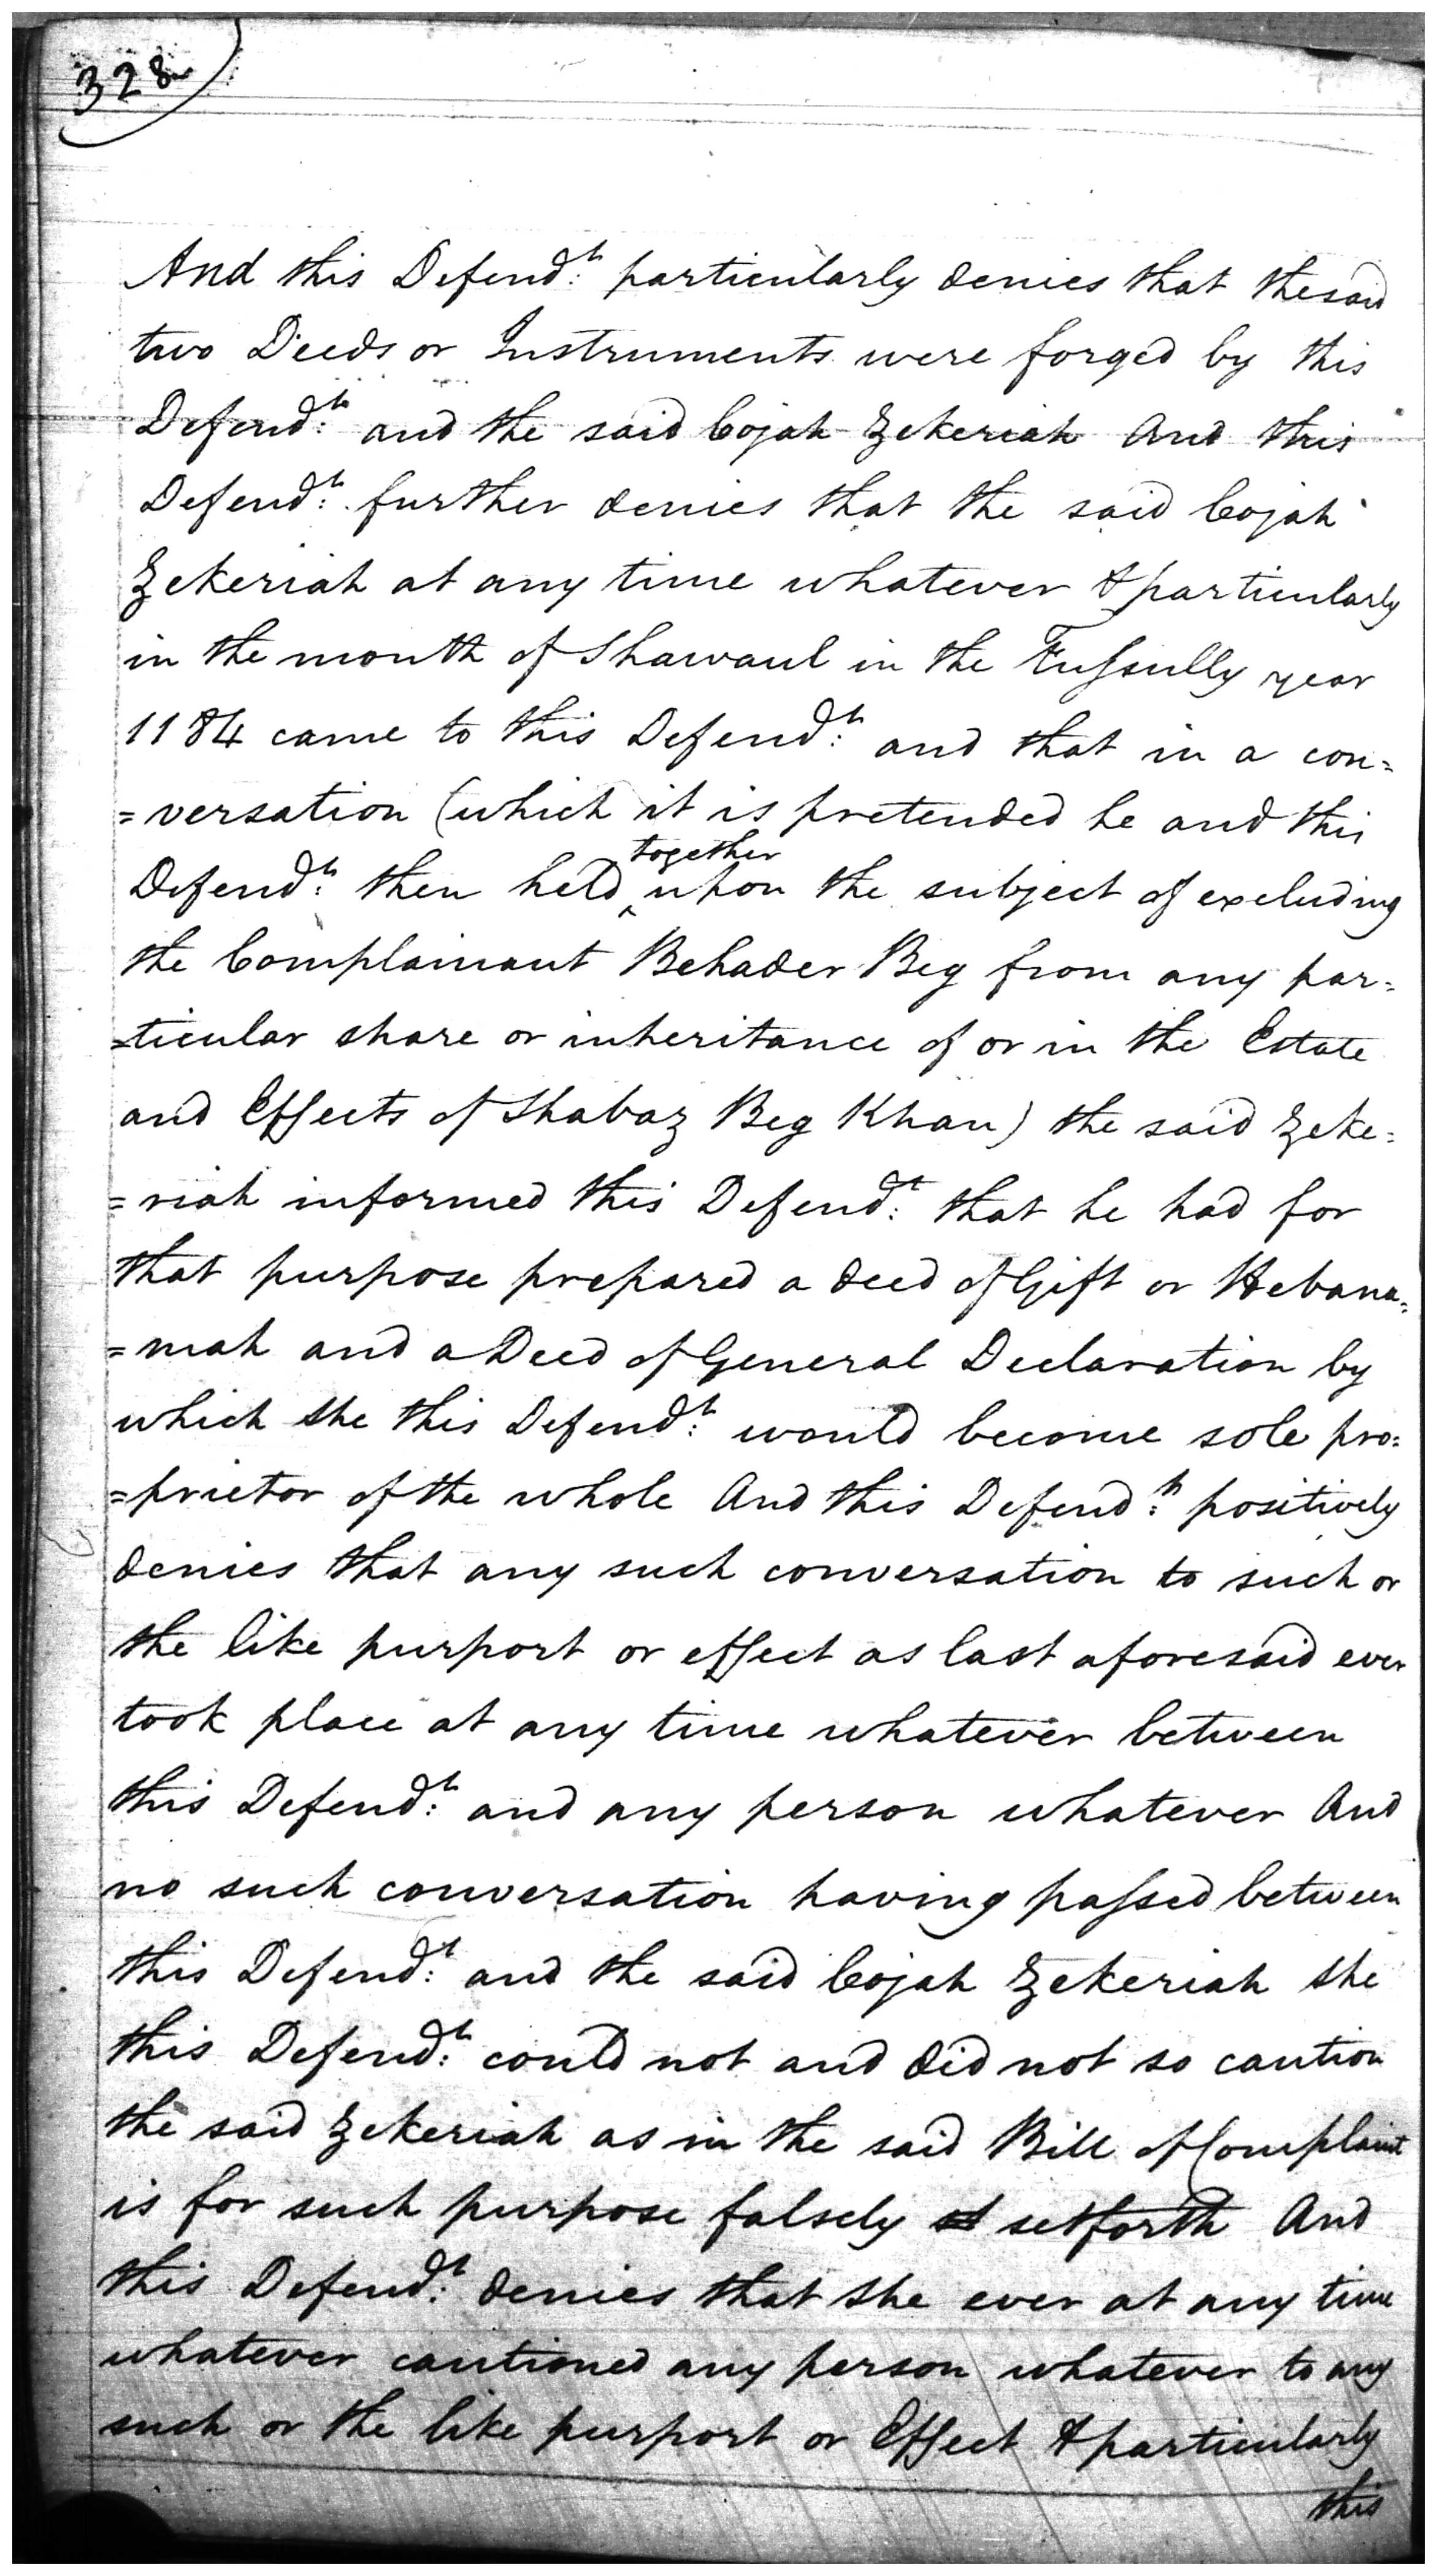 328
And this Defend:t particularly denies that the said
two Deeds or Instruments were forged by this
Defend:t and the said Cojah Zekeriah And this
Defend:t further denies that the said Cojah
Zekeriah at any time whatever & particularly
in the month of Shawaul in the Fussully year
1184 came to this Defend:t and that in a con=
=versation (which it is pretended he and this
together
Defend:t then held ‸ upon the subject of excluding
the Complainant Behader Beg from any par=
=ticular share or inheritance of or in the Estate
and Effects of Shabaz Beg Khan) the said Zeke=
=riah informed this Defend:t that he had for
that purpose prepared a deed of Gift or Hebana=
=mah and a Deed of General Declaration by
which she this Defend:t would become sole pro=
=prietor of the whole And this Defend:t positively
denies that any such conversation to such or
the like purport or effect as last aforesaid ever
took place at any time whatever between
this Defend:t and any person whatever And
no such conversation having passed between
this Defend:t and the said Cojah Zekeriah she
this Defend:t could not and did not so caution
the said Zekeriah as in the said Bill of Complaint
is for such purpose falsely setforth And
this Defend:t denies that she ever at any time
whatever cautioned any person whatever to any
such or the like purport or Effect & particularly
this